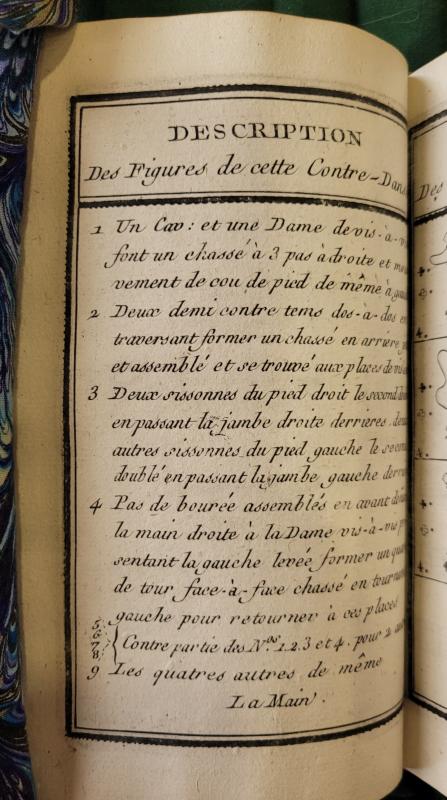 DESCRIPTION
Des Figures de cette Contre-Dans
1 Un Cav: et une Dame de vis-à-vi
font un chassé à 3 pas à droite et mou
vement de cou de pied de même à gau
2 Deux demi contre tems dos-à-dos en
traversant former un chassé en arriere
et assemblé et se trouvé aux places de vis
3 Deux sissonnes du pied droit le second
en passant la jambe droite derrieres
autres sissonnes du pied gauche le secon
doublé en passant la jambe gauche derri
4 Pas de bourée assemblés en avant
la main droite à la Dame vis-à-vis
sentant la gauche levée former un qua
de tour face-à-face chassé en tourna
gauche pour retourner à ces places
5
6
7
8
Contre partie des Nos 1.2.3 et 4. pour 2
9 Les quatres autres de même
La Main.
Des